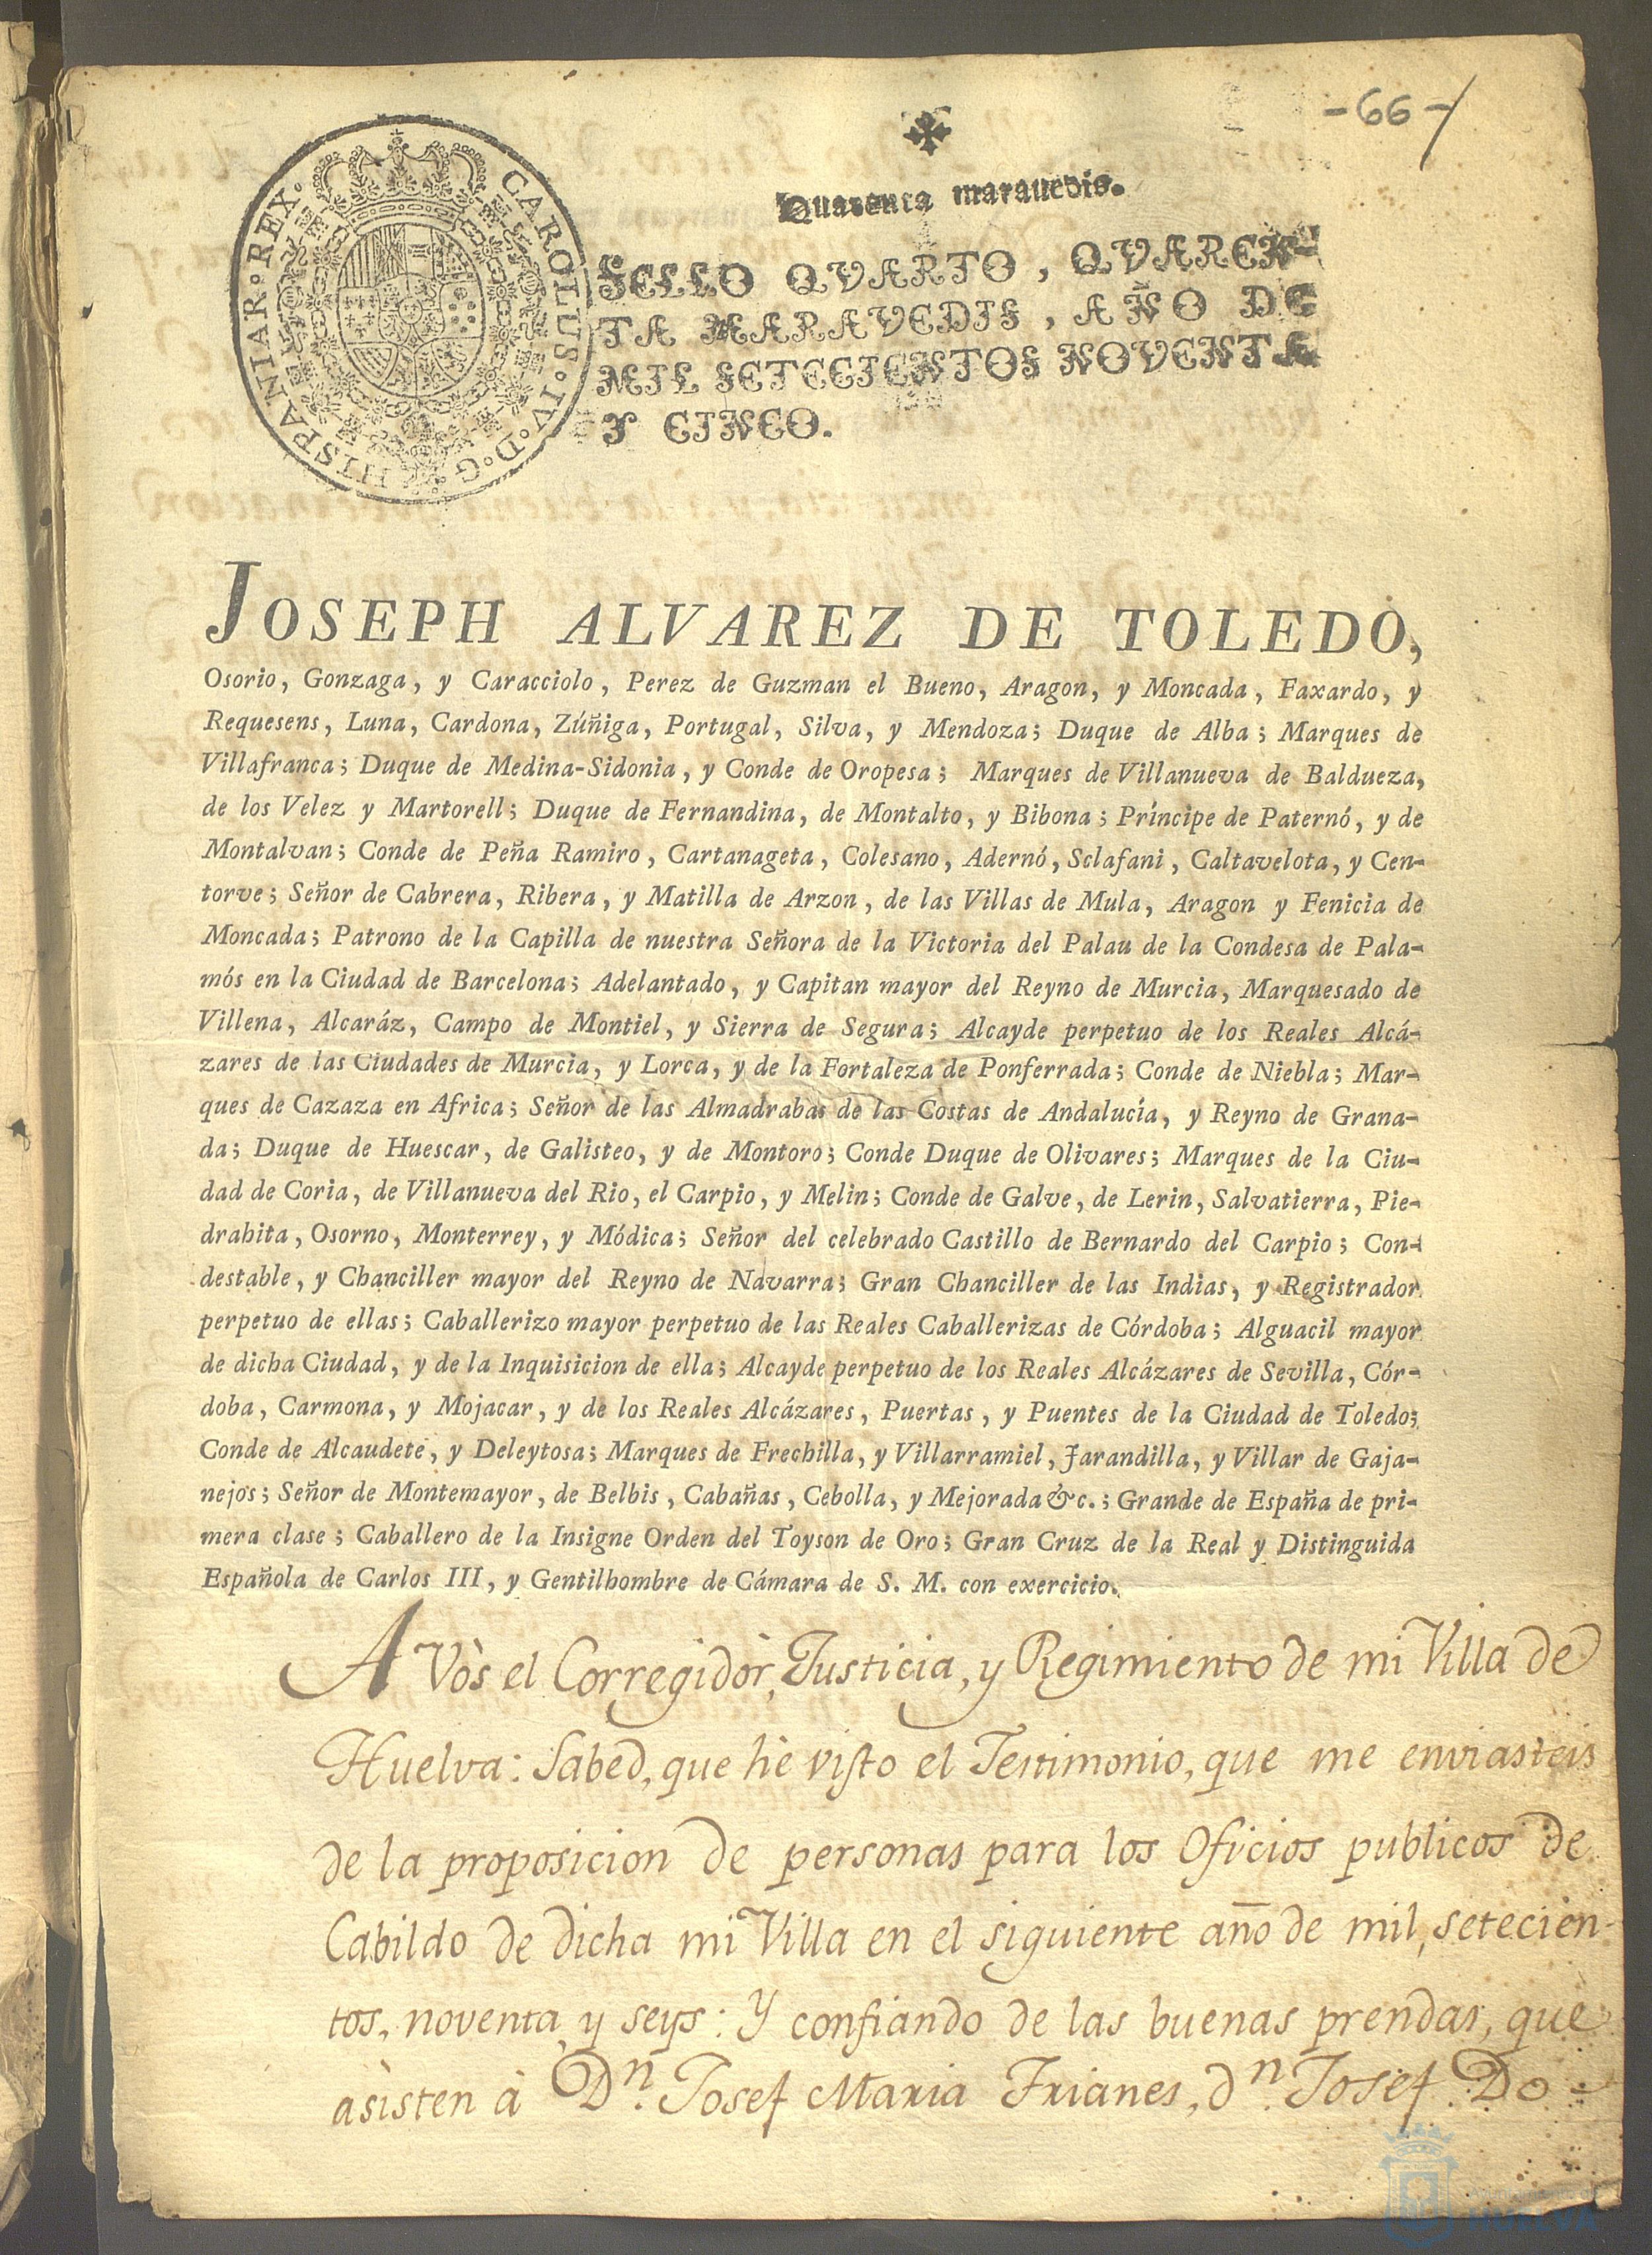 -66-/
CAROLUS·IV·D·G·HISPANIAR·REX·
Quarenta marauedis.
SELLO QVARTO, QVAREN-
TA MARAVEDIS, AÑO DE
MIL SETECIENTOS NOVENTA
Y CINCO.
JOSEPH ALVAREZ DE TOLEDO,
Osorio, Gonzaga, y Caracciolo, Perez de Guzman el Bueno, Aragon, y Moncada, Faxardo, y
Requesens, Luna, Cardona, Zúñiga, Portugal, Silva, y Mendoza; Duque de Alba; Marques de
Villafranca; Duque de Medina-Sidonia, y Conde de Oropesa; Marques de Villanueva de Baldueza,
de los Velez y Martorell; Duque de Fernandina, de Montalto, y Bibona; Príncipe de Paternó, y de
Montalvan; Conde de Peña Ramiro, Cartanageta, Colesano, Adernó, Sclafani, Caltavelota, y Cen-
torve; Señor de Cabrera, Ribera, y Matilla de Arzon, de las Villas de Mula, Aragon y Fenicia de
Moncada; Patrono de la Capilla de nuestra Señora de la Victoria del Palau de la Condesa de Pala-
mós en la Ciudad de Barcelona; Adelantado, y Capitan mayor del Reyno de Murcia, Marquesado de
Villena, Alcaráz, Campo de Montiel, y Sierra de Segura; Alcayde perpetuo de los Reales Alcá-
zares de las Ciudades de Murcia, y Lorca, y de la Fortaleza de Ponferrada; Conde de Niebla; Mar-
ques de Cazaza en Africa; Señor de las Almadrabas de las Costas de Andalucía, y Reyno de Grana-
da; Duque de Huescar, de Galisteo, y de Montoro; Conde Duque de Olivares; Marques de la Ciu-
dad de Coria, de Villanueva del Rio, el Carpio, y Melin; Conde de Galve, de Lerin, Salvatierra, Pie-
drahita, Osorno, Monterrey, y Módica; Señor del celebrado Castillo de Bernardo del Carpio; Con-
destable, y Chanciller mayor del Reyno de Navarra; Gran Chanciller de las Indias, y Registrador
perpetuo de ellas; Caballerizo mayor perpetuo de las Reales Caballerizas de Córdoba; Alguacil mayor
de dicha Ciudad, y de la Inquisicion de ella; Alcayde perpetuo de los Reales Alcázares de Sevilla, Cór-
doba, Carmona, y Mojacar, y de los Reales Alcázares, Puertas, y Puentes de la Ciudad de Toledo;
Conde de Alcaudete, y Deleytosa; Marques de Frechilla, y Villarramiel, Jarandilla, y Villar de Gaja-
nejos; Señor de Montemayor, de Belbis, Cabañas, Cebolla, y Mejorada &c.; Grande de España de pri-
mera clase; Caballero de la Insigne Orden del Toyson de Oro; Gran Cruz de la Real y Distinguida
Española de Carlos III, y Gentilhombre de Cámara de S. M. con exercicio.
A Vòs el Corregidòr, Justicia, y Regimiento de mi Villa de
Huelva: Sabed, que hè visto el Testimonio, que me enviasteis
de la proposicion de personas para los Oficios publicos de
Cabildo de dicha mi Villa en el siguiente año de mil, setecien-
tos, noventa, y seys: Y confiando de las buenas prendas, que
asisten à Dn. Josef Maria Frianes, dn. Josef Do=
HUELVA